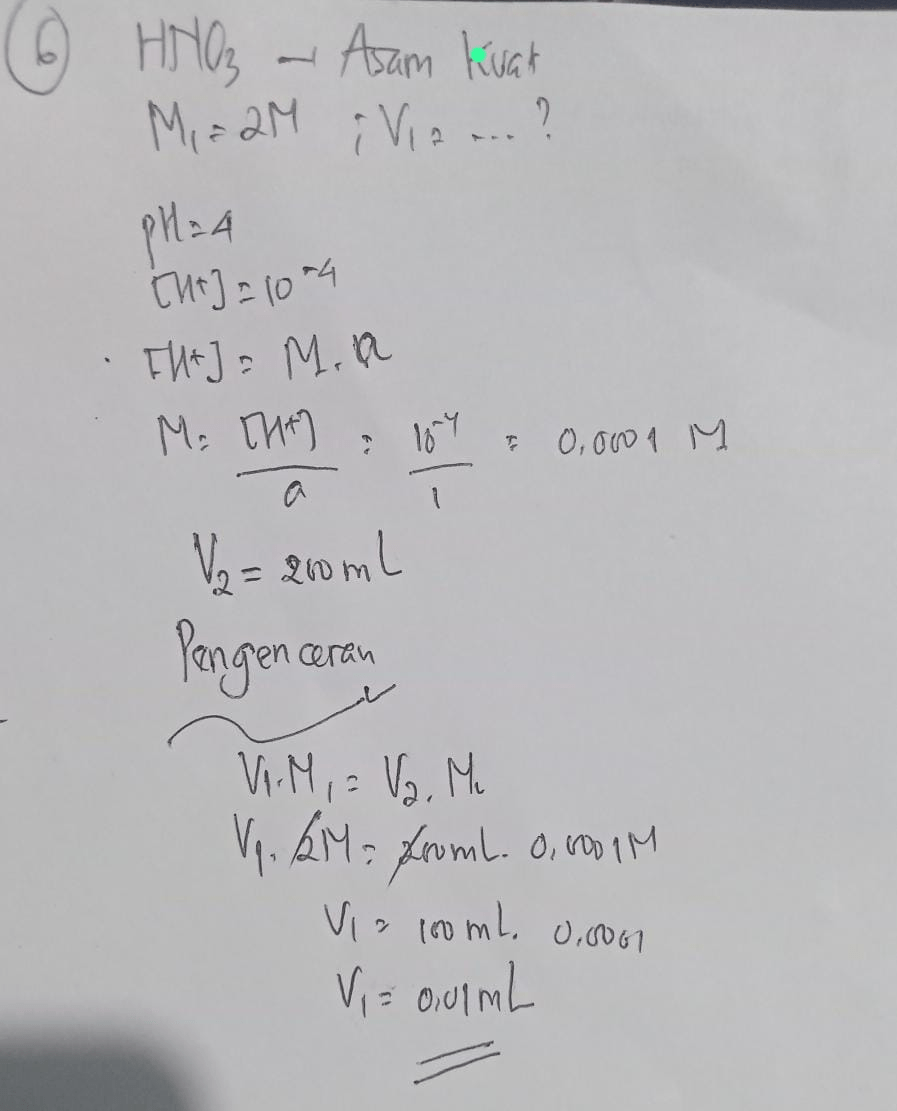 6 HNO₃ → Asam Kuat
M₁ = 2M ; V₁ = ....?
pH = 4
[H+] = 10⁻⁴
[H+] = M . a
M = [H+] / a = 10⁻⁴ / 1 = 0,0001 M
V₂ = 200 mL
Pengenceran
V₁.M₁ = V₂. M₂
V₁. 2M = 200 mL. 0,0001M
V₁ = 100 mL. 0,0001
V₁ = 0,01 mL